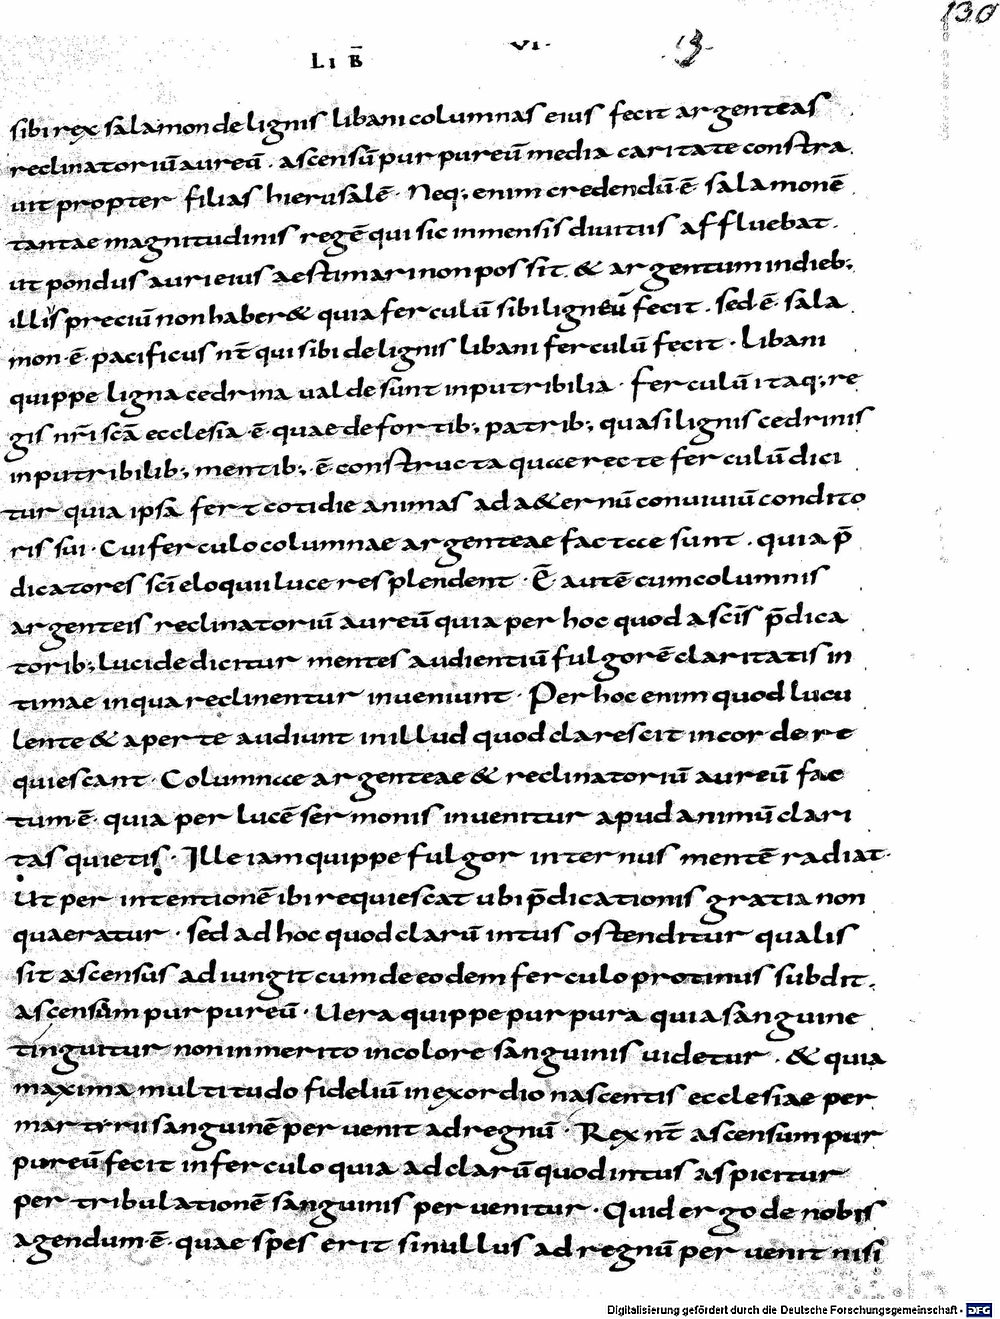 130
LIB̄ VI· 3
sibi rex salamon de lignis libani columnas eius fecit argenteas
reclinatoriū aureū· ascensū purpureū media caritate constra
uit propter filias hierusalē· Neq; enim credendū ē· salamonē
tantae magnitudinis regē qui sic inmensis diuitiis affluebat·
ut pondus auri eius aestimari non possit· & argentum in dieb;
illis preciū non haber& quia ferculū sibi ligneū fecit· sed ē· sala
mon· ē· pacificus nr̄ qui sibi de lignis libani ferculū fecit· Libani
quippe ligna cedrina ualde sunt inputribilia· ferculū itaq; re
gis nr̄i scā ecclesia ē· quae de fortib; patrib; quasi lignis cedrinis
inputribilib; mentib; ē· constructa quae recte ferculū dici
tur quia ipsa fert cotidie animas ad a&ernū conuiuiū condito
ris sui· Cui ferculo columnae argenteae factae sunt· quia p̄
dicatores sc̄i eloquii luce resplendent· Ē autē cum columnis
argenteis reclinatoriū aureū quia per hoc quod a sc̄is p̄dica
torib; lucide dicitur mentes audientiū fulgorē claritatis in
timae in qua reclinentur inueniunt· Per hoc enim quod lucu
lente & aperte audiunt in illud quod clarescit in corde re
quiescant· Columnae argenteae & reclinatoriū aureū fac
tum ē· quia per lucē sermonis inuenitur apud animū clari
tas quietis· Ille iam quippe fulgor internus mentē radiat·
Ut per intentionē ibi requiescat ubi p̄dicationis gratia non
quaeratur· sed ad hoc quod clarū intus ostenditur qualis
sit ascensus adiungit cum de eodem ferculo protinus subdit·
ascensum purpureū· Uera quippe purpura quia sanguine
tinguitur non inmerito in colore sanguinis uidetur· & quia
maxima multitudo fideliū in exordio nascentis ecclesiae per
martirii sanguinē peruenit ad regnū· Rex nr̄ ascensum pur
pureū fecit in ferculo quia ad clarū quod intus aspicitur
per tribulationē sanguinis peruenitur· Quid ergo de nobis
agendum ē· quae spes erit si nullus ad regnū peruenit nisi
Digitalisierung gefördert durch die Deutsche Forschungsgemeinschaft - DFG